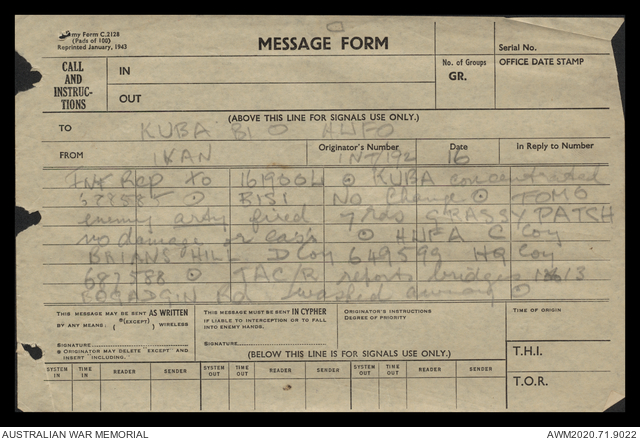 my Form C.2128
(Pads of 100)
Reprinted January, 1943
MESSAGE FORM
Serial No.
CALL
AND
INSTRUC-
TIONS
IN
OUT
No. of Groups
GR.
OFFICE DATE STAMP
(ABOVE THIS LINE FOR SIGNALS USE ONLY.)
TO KUBA BI O HUFO
FROM IKAN
Originator's Number INT/192
Date 16
In Reply to Number
Int Rep to 161900L ⊙ KUBA concentrated
⊙ BISI No Change ⊙ TOMO
enemy arty fired 7 rds GRASSY PATCH
no damage or cas's ⊙ HUFA C Coy
BRIANS HILL D Coy 649599 HQ Coy
687588 ⊙ TAC/R reports bridges 13
BOGADGIN Rd washed away ⊙
THIS MESSAGE MAY BE SENT AS WRITTEN
BY ANY MEANS. (EXCEPT) WIRELESS
SIGNATURE
ORIGINATOR MAY DELETE "EXCEPT" AND
INSERT "INCLUDING."
THIS MESSAGE MUST BE SENT IN CYPHER
IF LIABLE TO INTERCEPTION OR TO FALL
INTO ENEMY HANDS.
SIGNATURE
ORIGINATOR'S INSTRUCTIONS
DEGREE OF PRIORITY
TIME OF ORIGIN
(BELOW THIS LINE IS FOR SIGNALS USE ONLY.)
T.H.I.
T.O.R.
SYSTEM IN TIME IN READER SENDER SYSTEM OUT TIME OUT READER SENDER SYSTEM OUT TIME OUT READER SENDER
AUSTRALIAN WAR MEMORIAL
AWM2020.71.9022